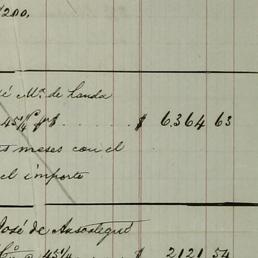 1200,
sé Mª de Landa
45¼ $ 6364 63
s meses con el
el importe
José de Ansoategui
45¼ $ 2121 54